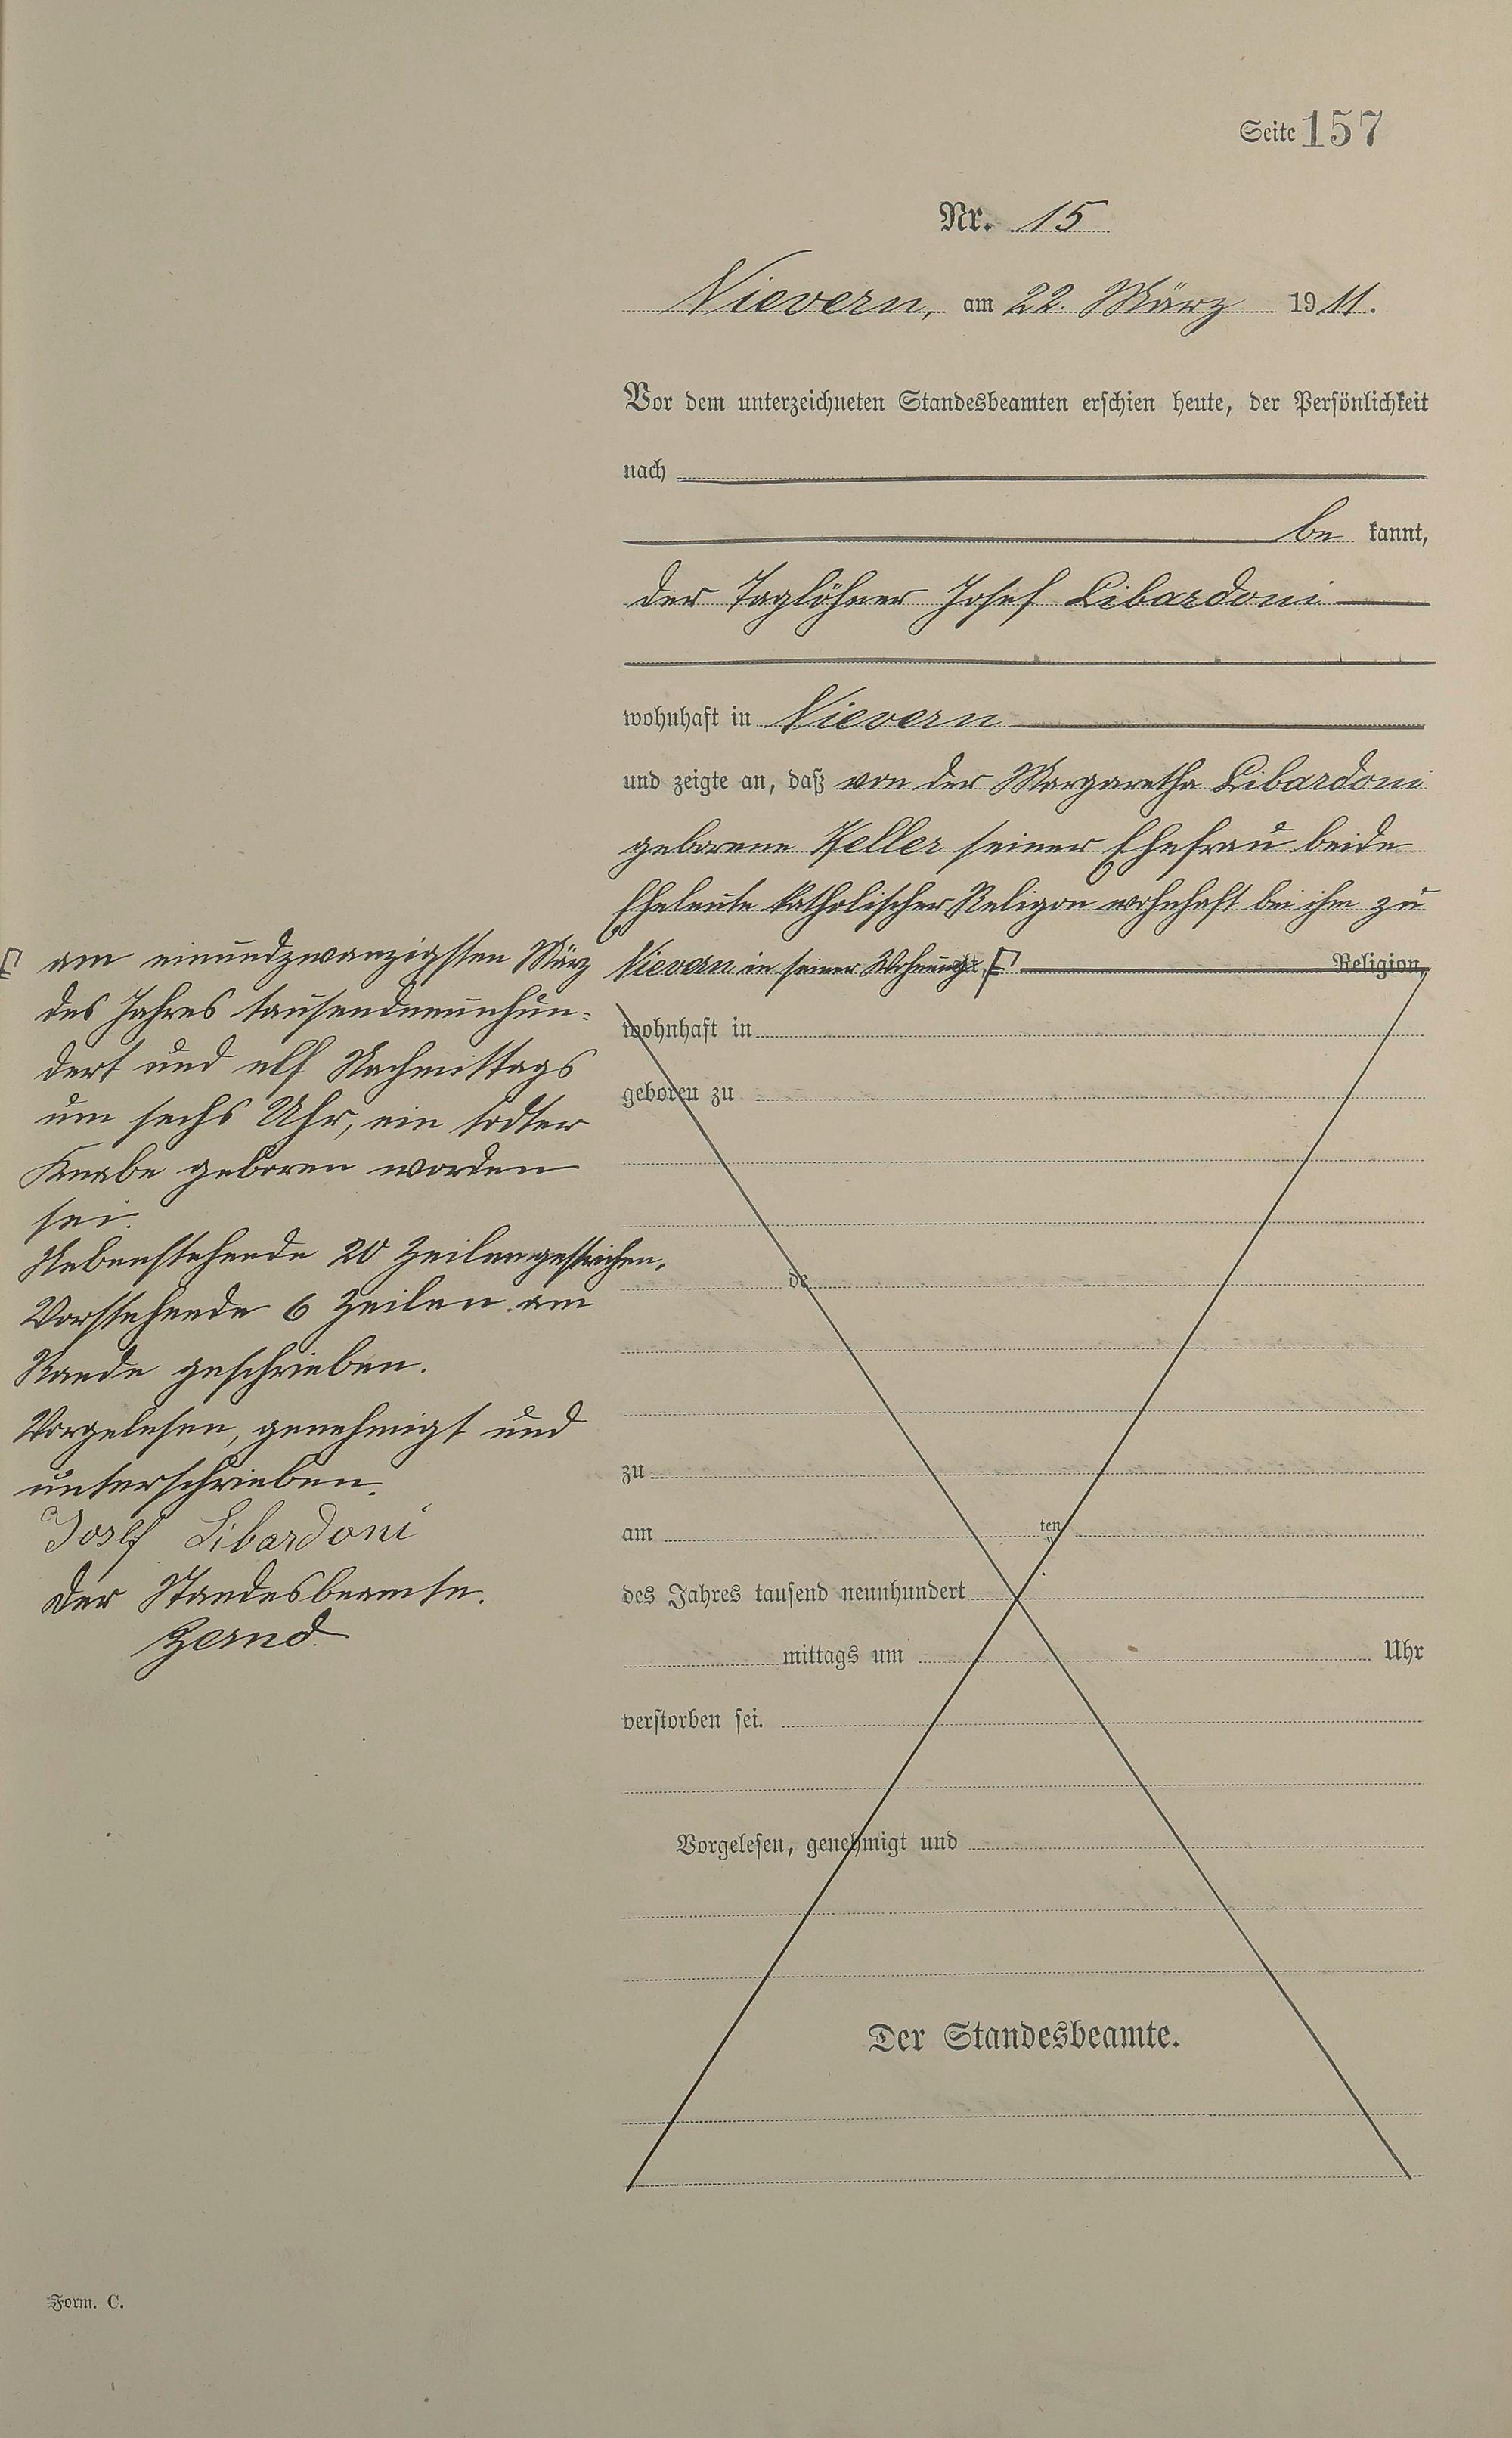 Seite 157
Nr. 15
Nievern, am 22. März 1911.
Vor dem unterzeichneten Standesbeamten erschien heute, der Persönlichkeit
nach
be kannt,
der Taglöhner Josef Libardoni
wohnhaft in Nievern
und zeigte an, daß von der Margaretha Libardoni
geborene Keller seiner Ehefrau beide
Eheleute katholischer Religion wohnhaft bei ihm zu
Nievern in seiner Wohnung Religion,
wohnhaft in
geboren zu
de
zu
am ten
des Jahres tausend neunhundert
mittags um Uhr
verstorben sei.
Vorgelesen, genehmigt und
Der Standesbeamte.
am einundzwanzigsten März
des Jahres tausendneunhun-
dert und elf Nachmittags
um sechs Uhr, ein todter
Knabe geboren worden
sei.
Nebenstehende 20 Zeilen gestrichen.
Vorstehende 6 Zeilen am
Rande geschrieben.
Vorgelesen, genehmigt und
unterschrieben.
Josef Libardoni
Der Standesbeamte.
Zernd.
Form. C.